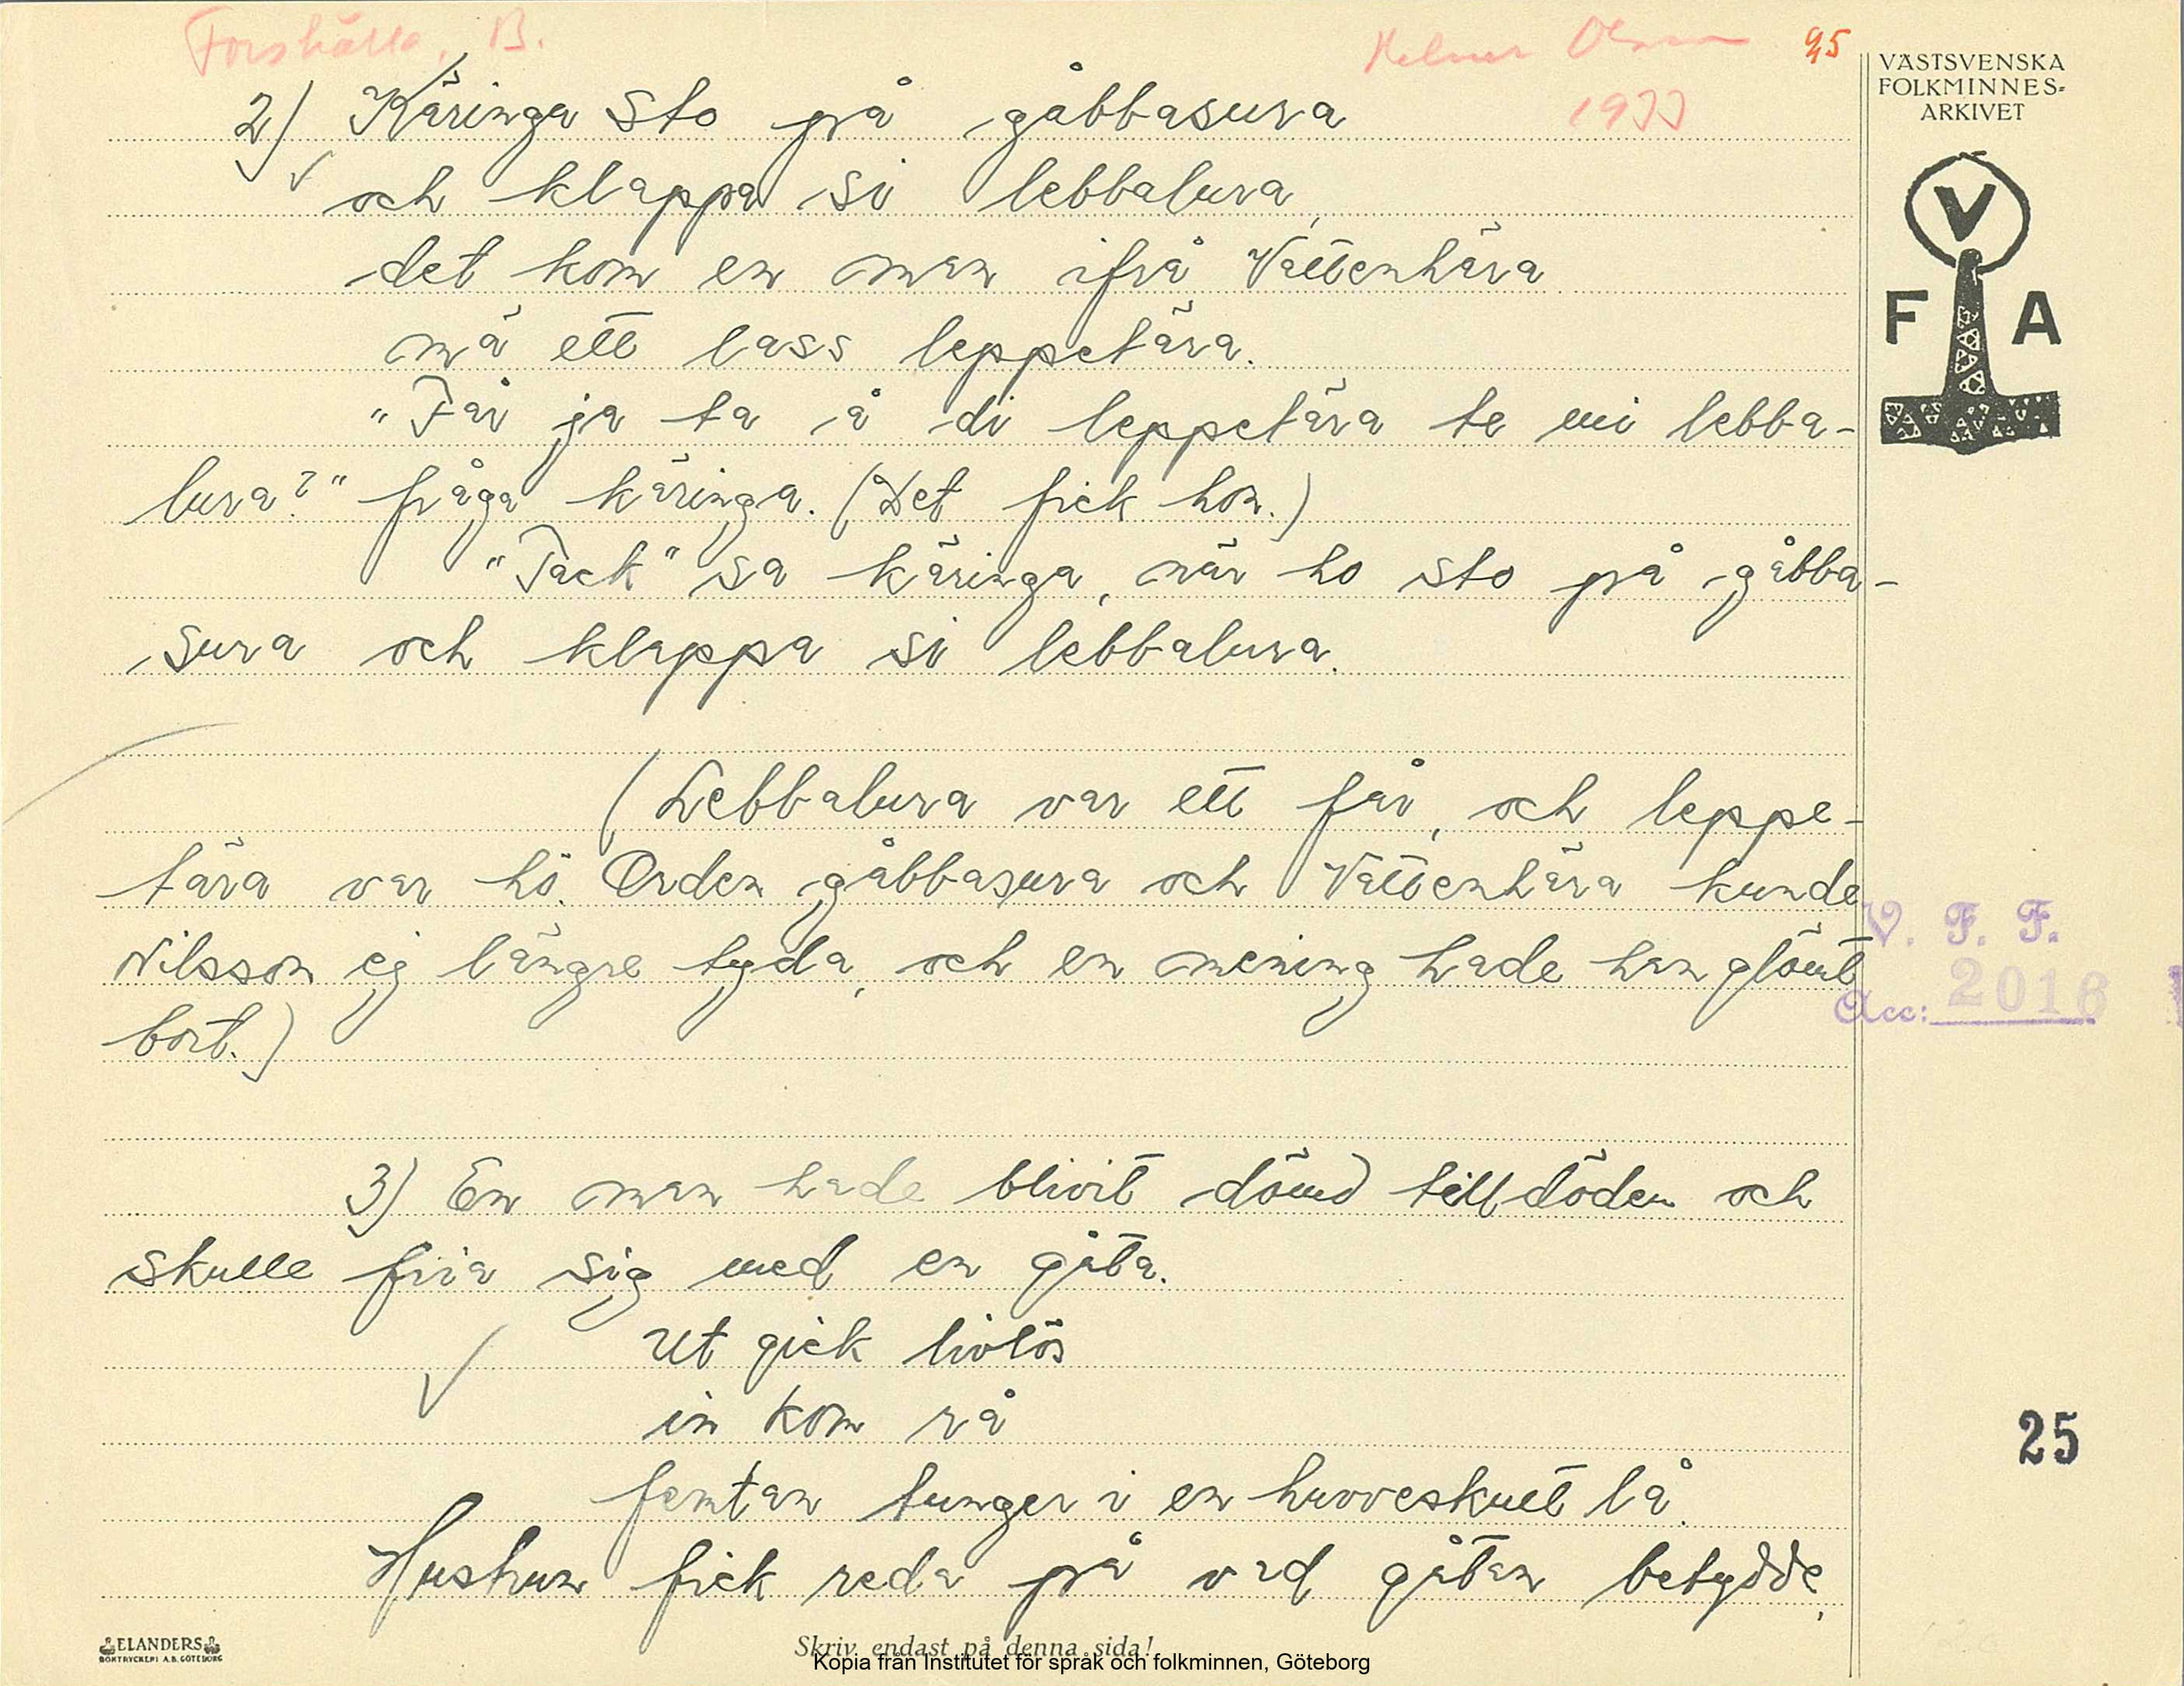 Forshälla, B.
Helmer Olsson 95
1933
VÄSTSVENSKA
FOLKMINNES-
ARKIVET
V
F A
2) Käringa sto på gåbbasura
och klappa si lebbalura,
det kom en man ifrå Vättenhära
mä ett lass leppetära.
"Får ja ta å di leppetära te mi lebba-
lura?" fråga käringa. (Det fick hon.)
"Tack" sa käringa, när ho sto på gåbba-
sura och klappa si lebbalura.
(Lebbalura var ett får, och leppe-
tära var hö. Orden gåbbasura och Vättenhära kunde
Nilsson ej längre tyda, och en mening hade han glömt
bort.)
V. F. F.
Acc: 2016
3) En man hade blivit dömd till döden och
skulle fria sig med en gåta.
Ut gick livlös
in kom rå
femtan tunger i en huvveskult lå.
Hushun fick reda på vad gåtan betydde,
25
ELANDERS
BOKTRYCKERI A.B. GÖTEBORG
Skriv endast på denna sida!
Kopia från Institutet för språk och folkminnen, Göteborg